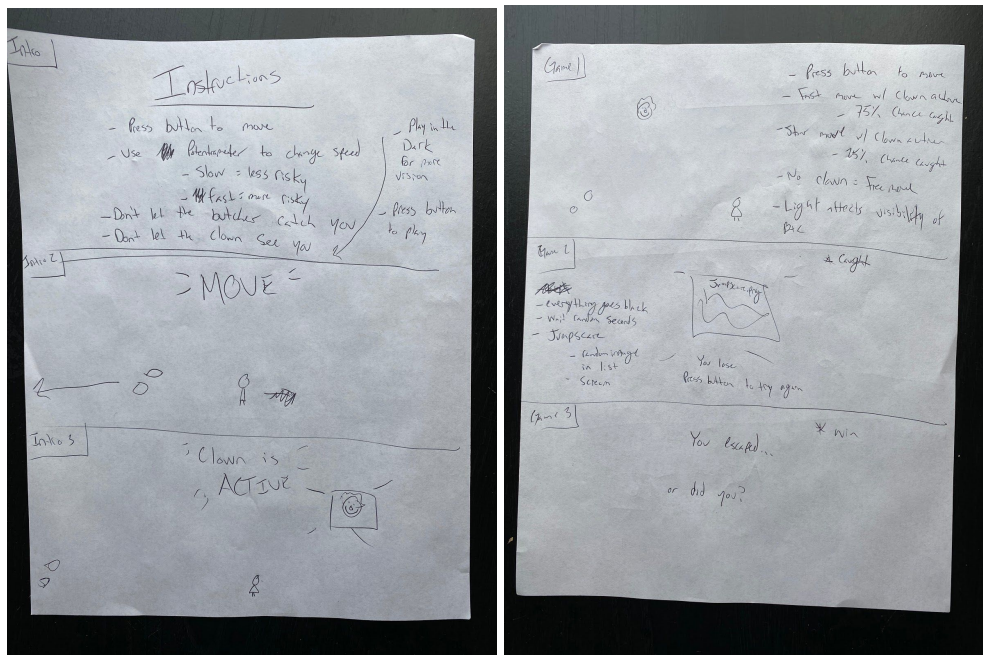 Intro
Instructions
- Press button to move
- Use Potentiometer to change speed
- Slow = less risky
- fast = more risky
- Don't let the butcher catch you
- Don't let the clown see you
- Play in the
Dark
for more
vision
- Press button
to play
Intro 2
MOVE
Intro 3
Clown is
ACTIVE
Game 1
- Press button to move
- Fast move w/ Clown active
- 75% Chance caught
- Slow move w/ Clown active
- 25% Chance caught
- No clown = Free move
- Light affects visibility of
Game 2
* Caught
- everything goes black
- wait random seconds
- Jumpscare
- random image
in list
- scream
Jumpscare.png
You lose
Press button to try again
Game 3
* Win
You escaped...
or did you?